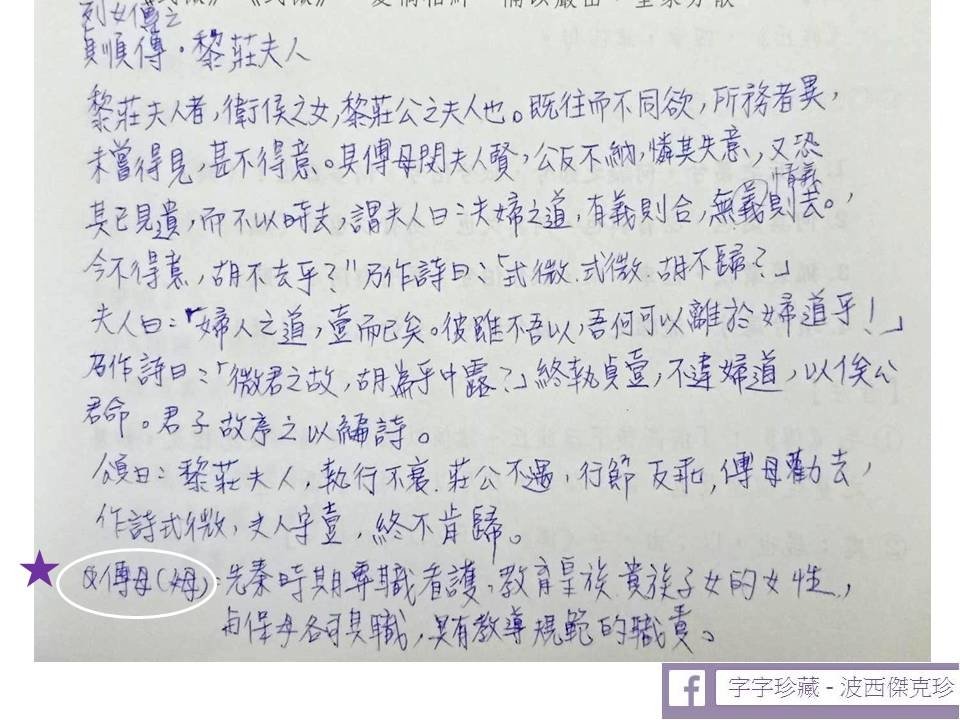 列女傳之
貞順傳。黎莊夫人
黎莊夫人者，衛侯之女，黎莊公之夫人也。既往而不同欲，所務者異，
未嘗得見，甚不得意。其傅母閔夫人賢，公反不納，憐其失意，又恐
其已見遺，而不以時去，謂夫人曰：夫婦之道，有義則合，無義則去。，
今不得意，胡不去乎？"乃作詩曰：「式微式微，胡不歸？」
夫人曰：「婦人之道，壹而已矣。彼雖不吾以，吾何可以離於婦道乎！」
乃作詩曰：「微君之故，胡為乎中露？」終執貞壹，不違婦道，以俟公
君命。君子故序之以編詩。
頌曰：黎莊夫人，執行不衰，莊公不遇，行節反乖，傅母勸去，
作詩式微，夫人守壹，終不肯歸。
傅母(姆)：先秦時期專職看護、教育皇族、貴族子女的女性，
與保母各司其職，具有教導規範的職責。
字字珍藏 - 波西傑克珍